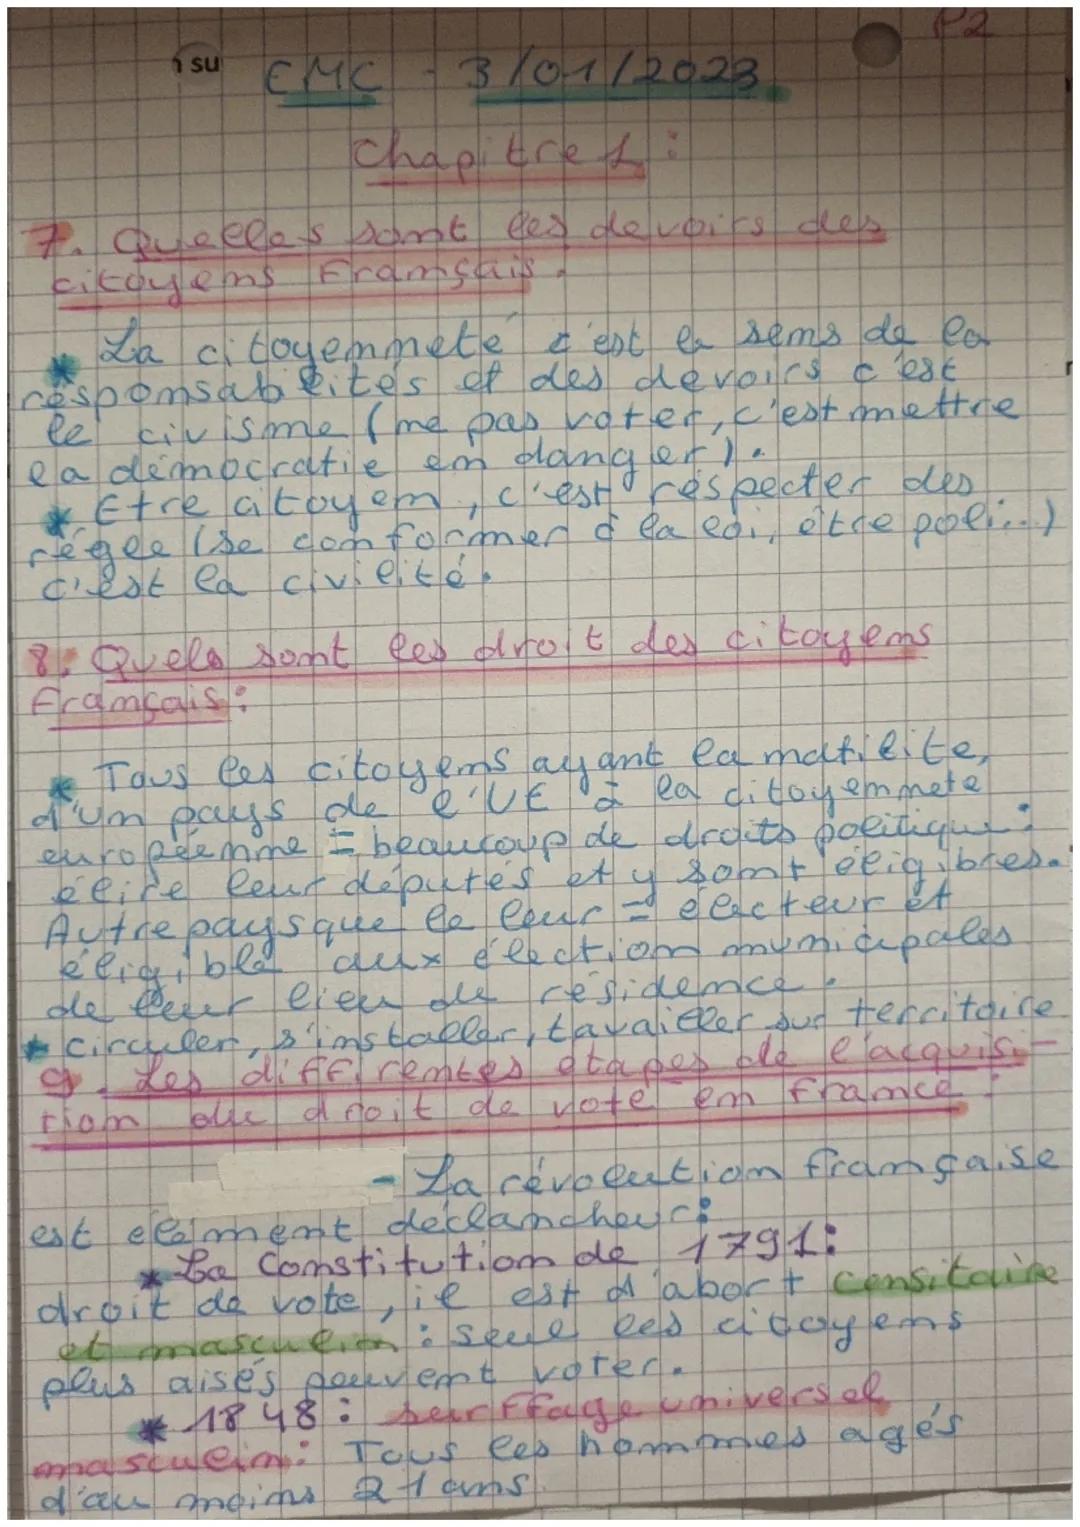 P2
su
EMC - 3/01/2023
Chapitre 1 :
7. Quelles sont les devoirs des
citoyens Français.
* La citoyenneté c'est la sens de la
résponsabilités et des devoirs c'est
le civisme (ne pas voter, c'est mettre
la démocratie en danger).
* Etre citoyen, c'est réspecter des
régle (se conformer à la loi, être poli...)
c'est la civilité.
8. Quels sont les droit des citoyens
Français :
* Tous les citoyens ayant la natilite,
d'un pays de l'UE à la citoyennete
européenne = beaucoup de droits politique :
élire leur députés et y sont éligibres.
Autre pays que le leur = électeur et
éligible aux élection municipales
de leur lieu de résidence.
* circuler, s'installer, tavailler sur territoire
9. Les différentes étapes de l'acquisi-
tion du droit de vote en France :
- La révolution française
est élément déclancheur :
* La Constitution de 1791 :
droit de vote, il est d'abort censitaire
et masculin : seul les citoyens
plus aisés peuvent voter.
* 1848 : surffage universel
masculin : Tous les hommes agés
d'au moins 21 ans.